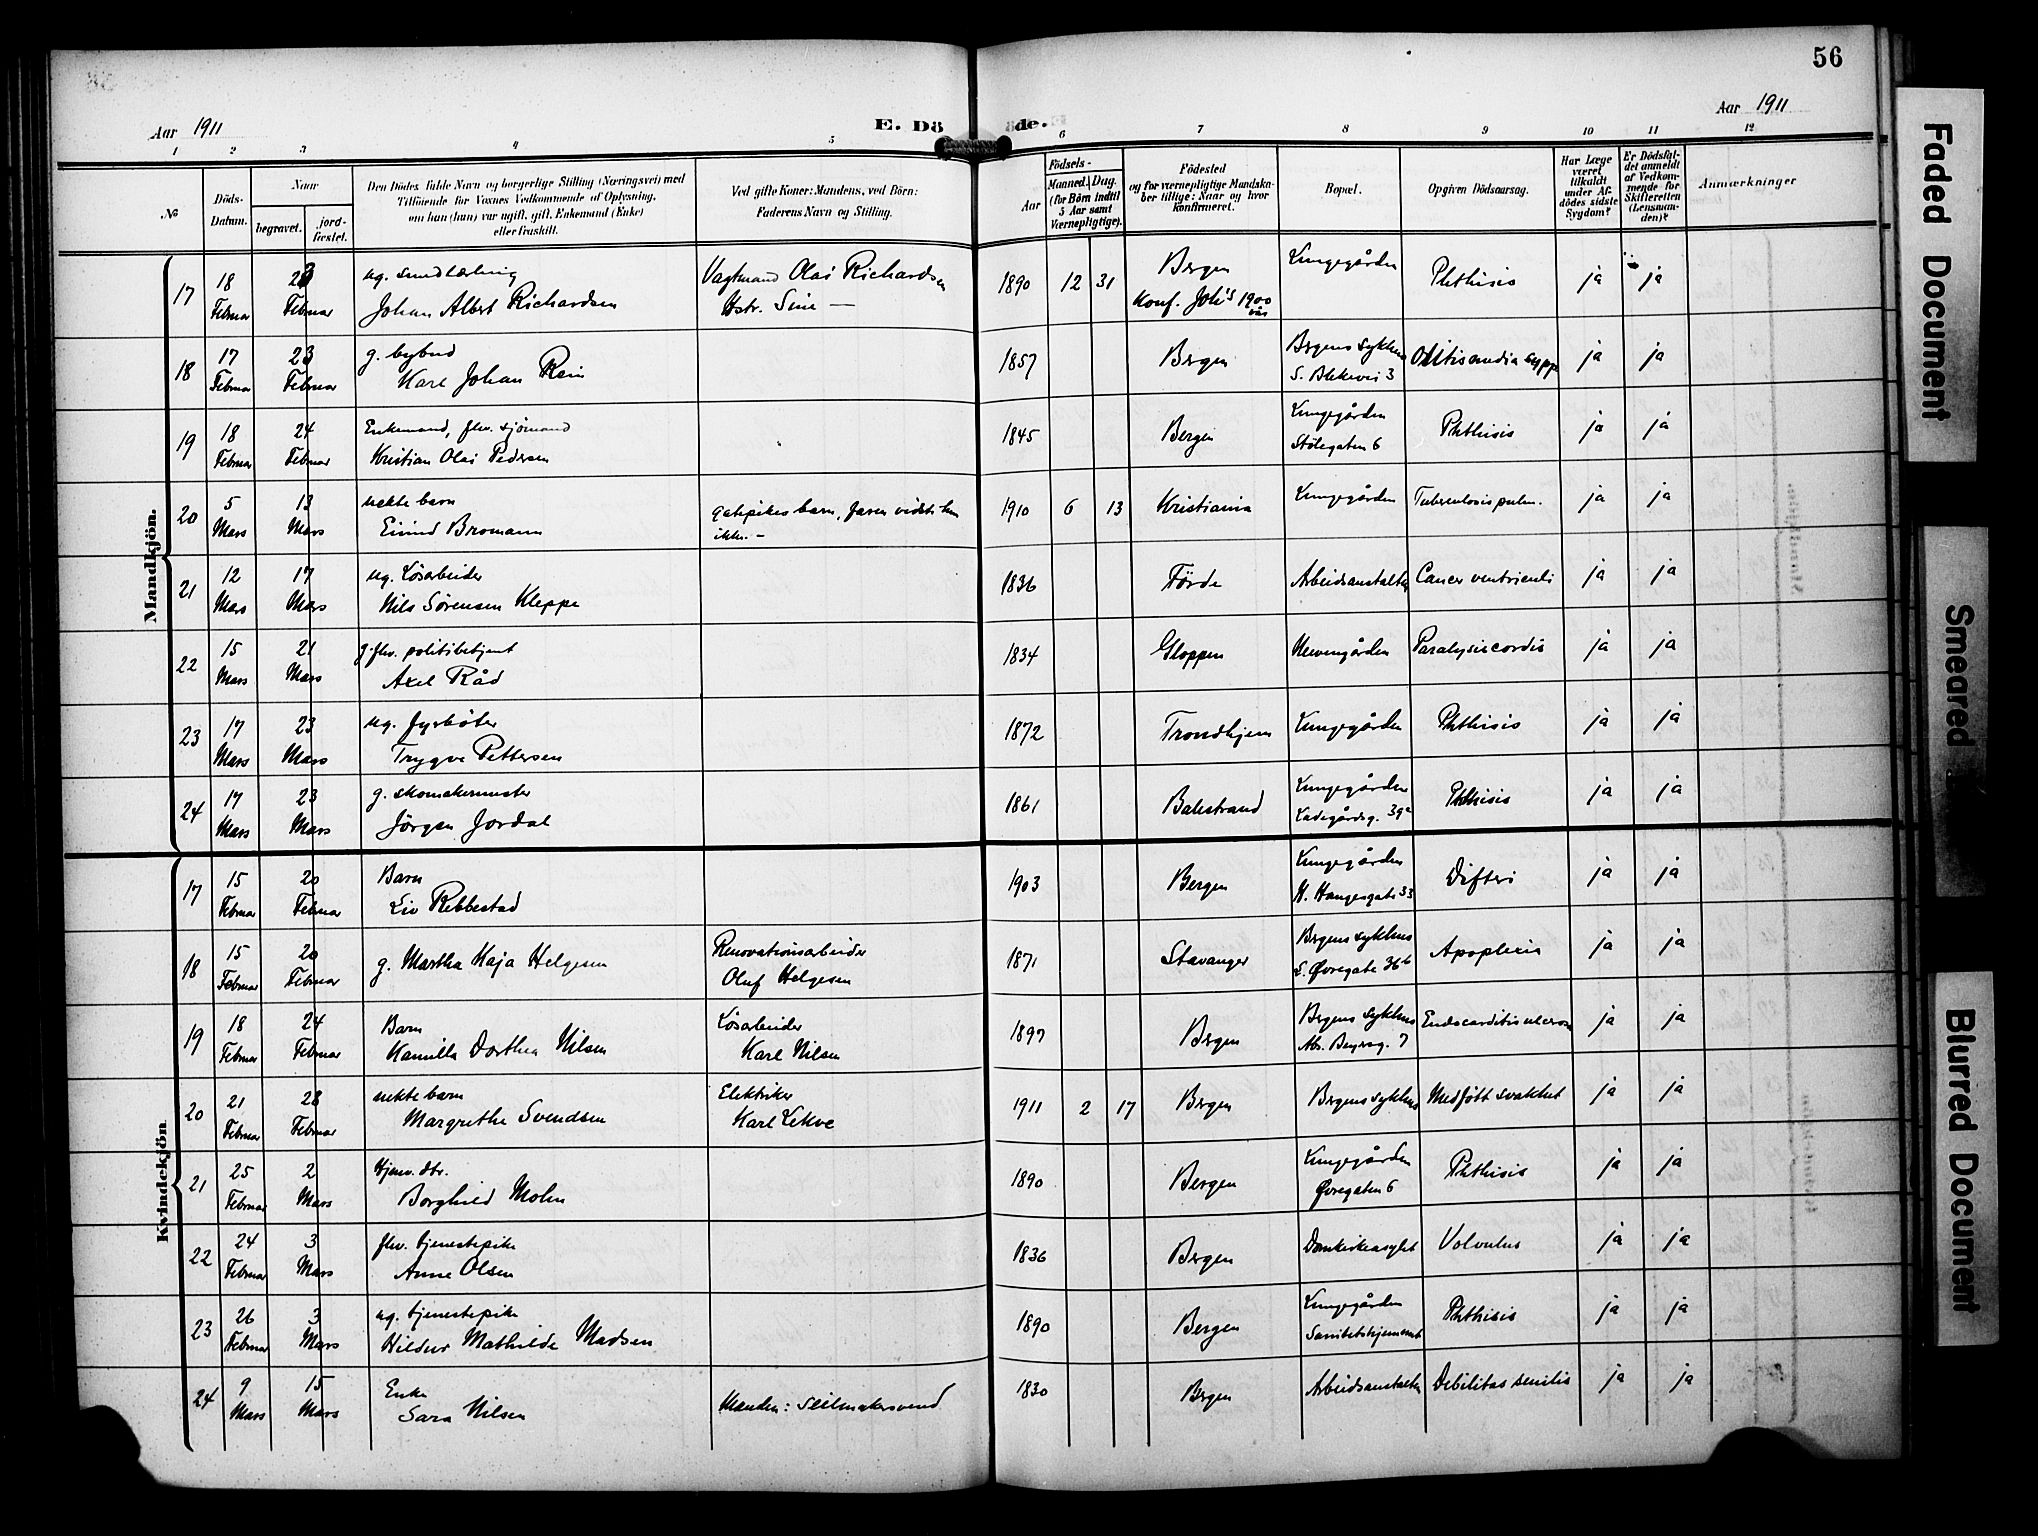 56
Aar 1911
E. Döde.
Aar 1911
1 2 3 4 5 6 7 8 9 10 11 12
No
Döds-Datum.
Naar
begravet.
jord-fæstet.
Den Dödes fulde Navn og borgerlige Stilling (Næringsvei) med
Tilföiende for Voxnes Vedkommende af Oplysning,
om han (hun) var ugift, gift, Enkemand (Enke)
eller fraskilt.
Ved gifte Koner: Mandens, ved Börn:
Faderens Navn og Stilling.
Födsels-
Aar
Maaned. Dag.
(for Börn indtil
5 Aar samt
Værnepligtige).
Födested
og for værnepligtige Mandska-
ber tillige: Naar og hvor
konfirmeret.
Bopæl.
Opgiven Dödsaarsag.
Har Læge
været
tilkaldt
under Af-
dödes sidste
Sygdom?
Er Dödsfal-
det anmeldt
af Vedkom-
mende for
Skifteretten
(Lensman-
den)?
Anmærkninger
Mandkjön.
17 18 Februar 23 Februar ug. Johan Albert Richardsen Vagtmand Olai Richardsen Hstr. Sine — 1890 12 31 Bergen Konf. Joh's 1900 Lungegården Phthisis ja ja
18 17 Februar 23 Februar g. bybud Karl Johan 1857 Bergen Bergens sykehus 3 Otitis media supp ja ja
19 18 Februar 24 Februar Enkemand, fhv. sjömand Kristian Olai Pedersen 1845 Bergen Lungegården Stölegaten 6 Phthisis ja ja
20 5 Mars 13 Mars uekte barn Eivind Bromann barn, faren ikke. – 1910 6 13 Kristiania Lungegården Tuberculosis pulm. ja ja
21 12 Mars 17 Mars ug. Løsarbeider Nils Sørensen Kleppe 1836 Førde Arbeidsanstalten Cancer ventriculi ja ja
22 15 Mars 21 Mars g. fhv. politibetjent Axel Råd 1834 Gloppen Paralysis cordis ja ja
23 17 Mars 23 Mars ug. fyrbøter Trygve Pettersen 1872 Trondhjem Lungegården Phthisis ja ja
24 17 Mars 23 Mars g. skomakermester Jørgen Jordal 1861 Balestrand Lungegården Ladegårdsg. 39a Phthisis ja ja
Kvindekjön
17 15 Februar 20 Februar Barn Liv Rebbestad 1903 Bergen Lungegården H. Haugesgate 33 Difteri ja ja
18 15 Februar 20 Februar g. Martha Kaja Helgesen Renovationsarbeider Oluf Helgesen 1871 Stavanger Bergens sykehus L. Øvregate 36b Apoplexia ja ja
19 18 Februar 24 Februar Barn Kamilla Dorthea Nilsen Løsarbeider Karl Nilsen 1897 Bergen Bergens sykehus 7 Endocarditis ulcerosa ja ja
20 21 Februar 28 Februar uekte barn Margrethe Svendsen Elektriker Karl Lekve 1911 2 17 Bergen Bergens sykehus Medfött svakhet ja ja
21 25 Februar 2 Mars Hjemv. dtr. Borghild Mohn 1890 Bergen Lungegården Øvregaten 6 Phthisis ja ja
22 24 Februar 3 Mars fhv. tjenestepike Anne Olsen 1836 Bergen Domkirkeasylet Volvulus ja ja
23 26 Februar 3 Mars ug. tjenestepike Hildur Mathilde Madsen 1890 Bergen Lungegården Sanitetshjemmet Phthisis ja ja
24 9 Mars 15 Mars Enke Sara Nilsen Manden: Seilmakersvend 1830 Bergen Arbeidsanstalten Debilitas senilis ja ja
Faded Document
Smeared
Blurred Document